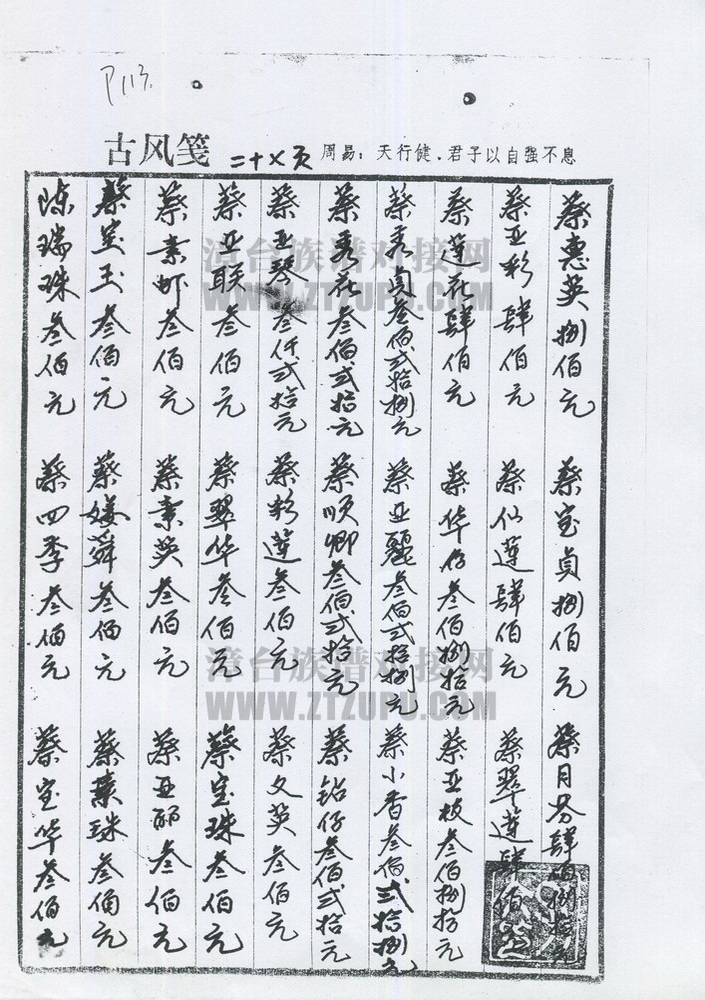 P113.
古风笺 二十乂页 周易：天行健．君子以自强不息
蔡惠英捌佰元 蔡宝贞捌佰元 蔡月芬肆佰捌拾元
蔡亚彩肆佰元 蔡仙莲肆佰元 蔡翠莲肆佰元
蔡莲花肆佰元 蔡华仔叁佰捌拾元 蔡亚枝叁佰捌拾元
蔡秀贞叁佰贰拾捌元 蔡亚丽叁佰贰拾捌元 蔡小香叁佰贰拾捌元
蔡秀花叁佰贰拾元 蔡顺卿叁佰贰拾元 蔡钻仔叁佰贰拾元
蔡亚琴叁仟贰拾元 蔡彩莲叁佰元 蔡文英叁佰元
蔡亚联叁佰元 蔡翠华叁佰元 蔡宝珠叁佰元
蔡素虾叁佰元 蔡素英叁佰元 蔡亚丽叁佰元
蔡宝玉叁佰元 蔡舜叁佰元 蔡素珠叁佰元
陈瑞珠叁佰元 蔡四季叁佰元 蔡宝华叁佰元
漳台族谱对接网
WWW.ZTZUPU.COM
漳台族谱对接网
WWW.ZTZUPU.COM